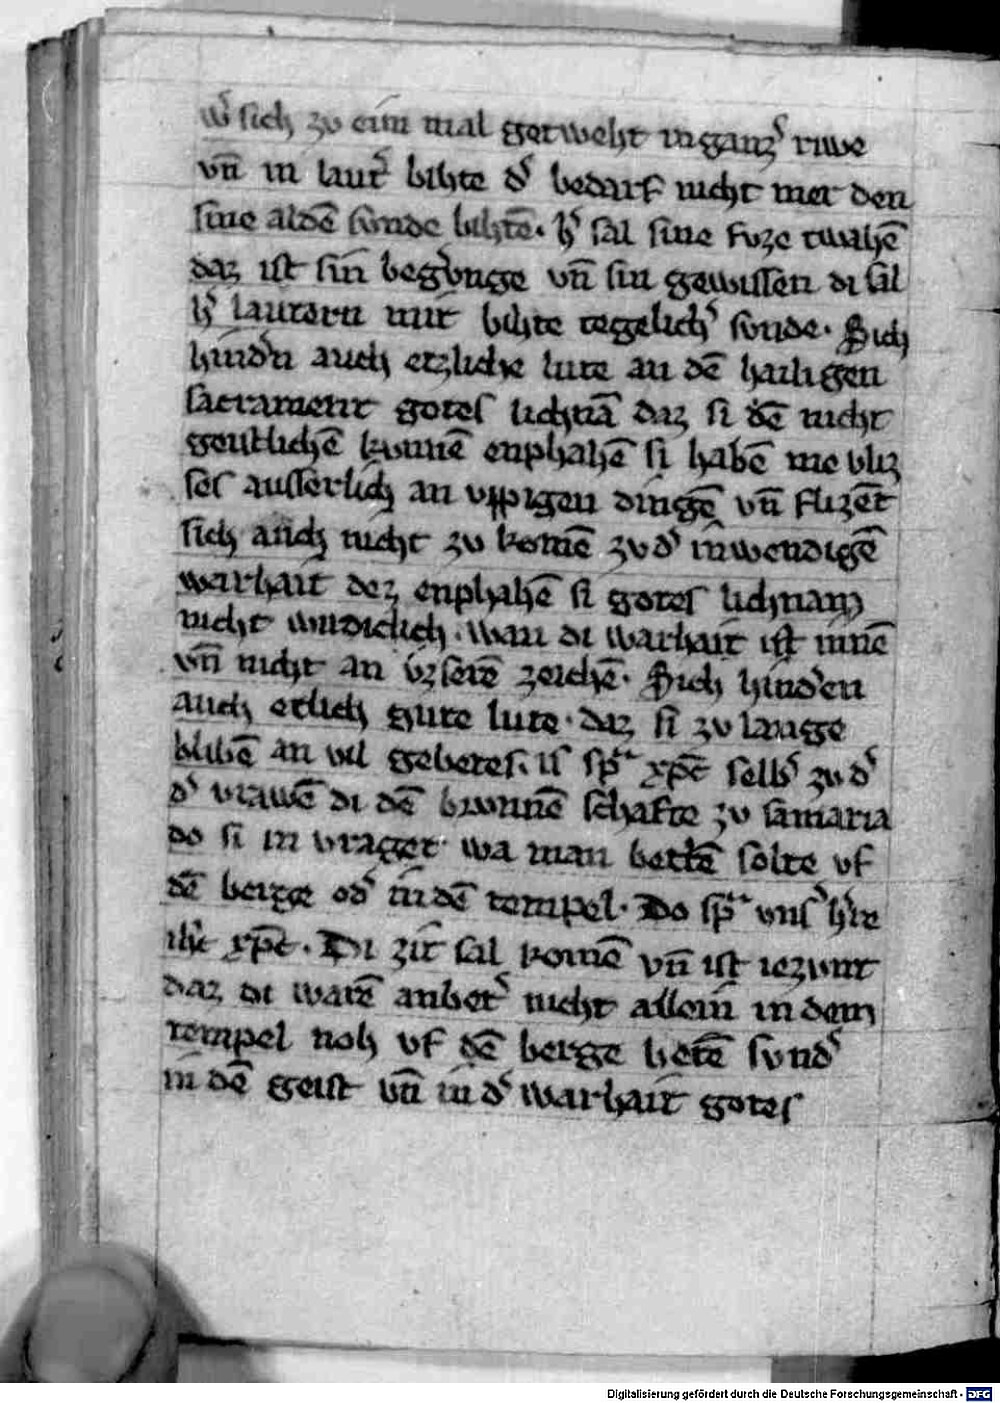 wˢ sich zv eim mal getweht in ganzˢ riwe
vn̄ in lautˢ bihte dˢ bedarf nicht mer den
sine aldē svnde bihtē. ħˢ sal sine fvze twahē
daz ist sin begˢvnge vn̄ sin gewissen di sal
ħˢ lautern mit bihte tegelichˢ svnde. Sich
hindˢn auch etzliche lute an dē hailigen
sacrament gotes lichnā daz si dē nicht
geistlichē kvnnē enphahē si habē me vliz
ses ausserlich an vppigen dingē vn̄ flizēt
sich auch nicht zv komē zv dˢ inwendigē
warhait dez enphahē si gotes lichnam
nicht wirdiclich. wan di warhait ist innē
vn̄ nicht an vzserē zeichē. Sich hindˢen
auch etlich gute lute. daz si zv lange
blibē an vil gebetes. is sp̄ᵃ xp̄c selbˢ zv dˢ
dˢ vrawē di dē brvnnē schafte zv samaria
do si in vraget. wa man bettē solte vf
dē berge odˢ in dē tempel. Do sp̄ᵃ vnsˢ hˢre
ih̄c xp̄c. Di zit sal komē vn̄ ist iezvnt
daz di warē anbetˢ nicht allein in dem
tempel noh vf dē berge betē svndˢ
in dē geist vn̄ in dˢ warhait gotes
Digitalisierung gefördert durch die Deutsche Forschungsgemeinschaft - DFG